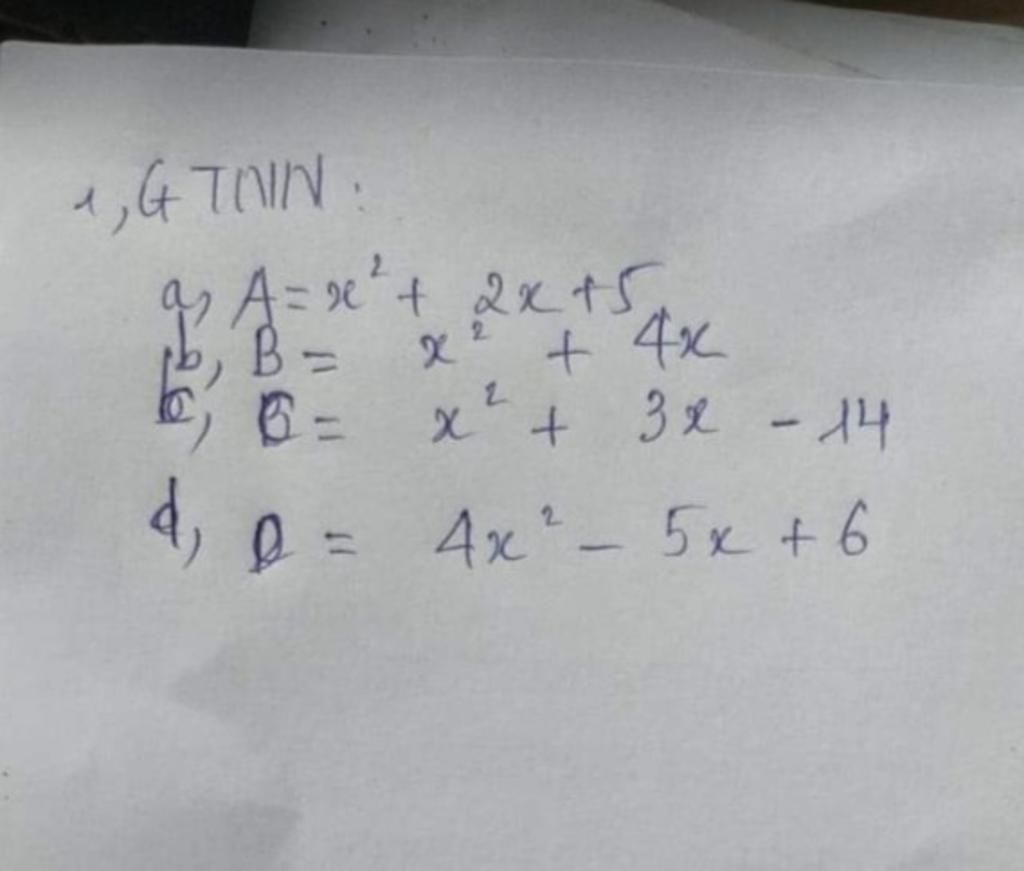 1, GTNN:
a, A = x² + 2x + 5
b, B = x² + 4x
c, C = x² + 3x - 14
d, D = 4x² - 5x + 6